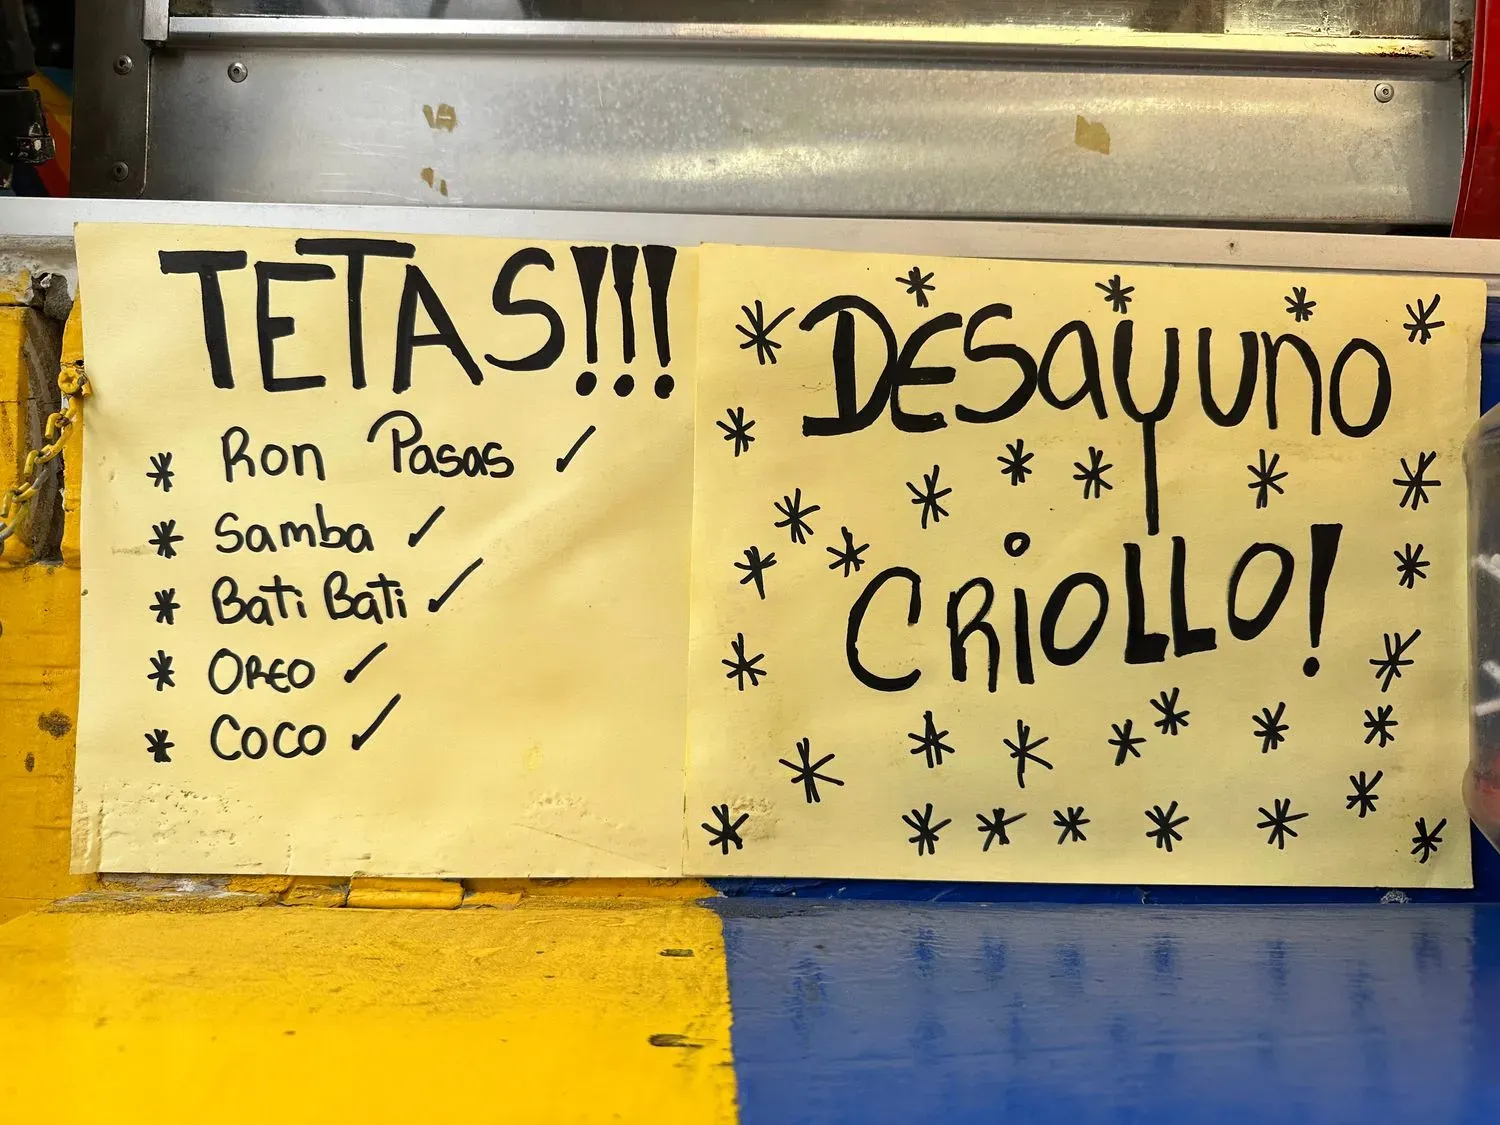 TETAS!!!
* Ron Pasas ✓
* Samba ✓
* Bati Bati ✓
* OREO ✓
* COCO ✓
DESayuno
CRiOLLO!